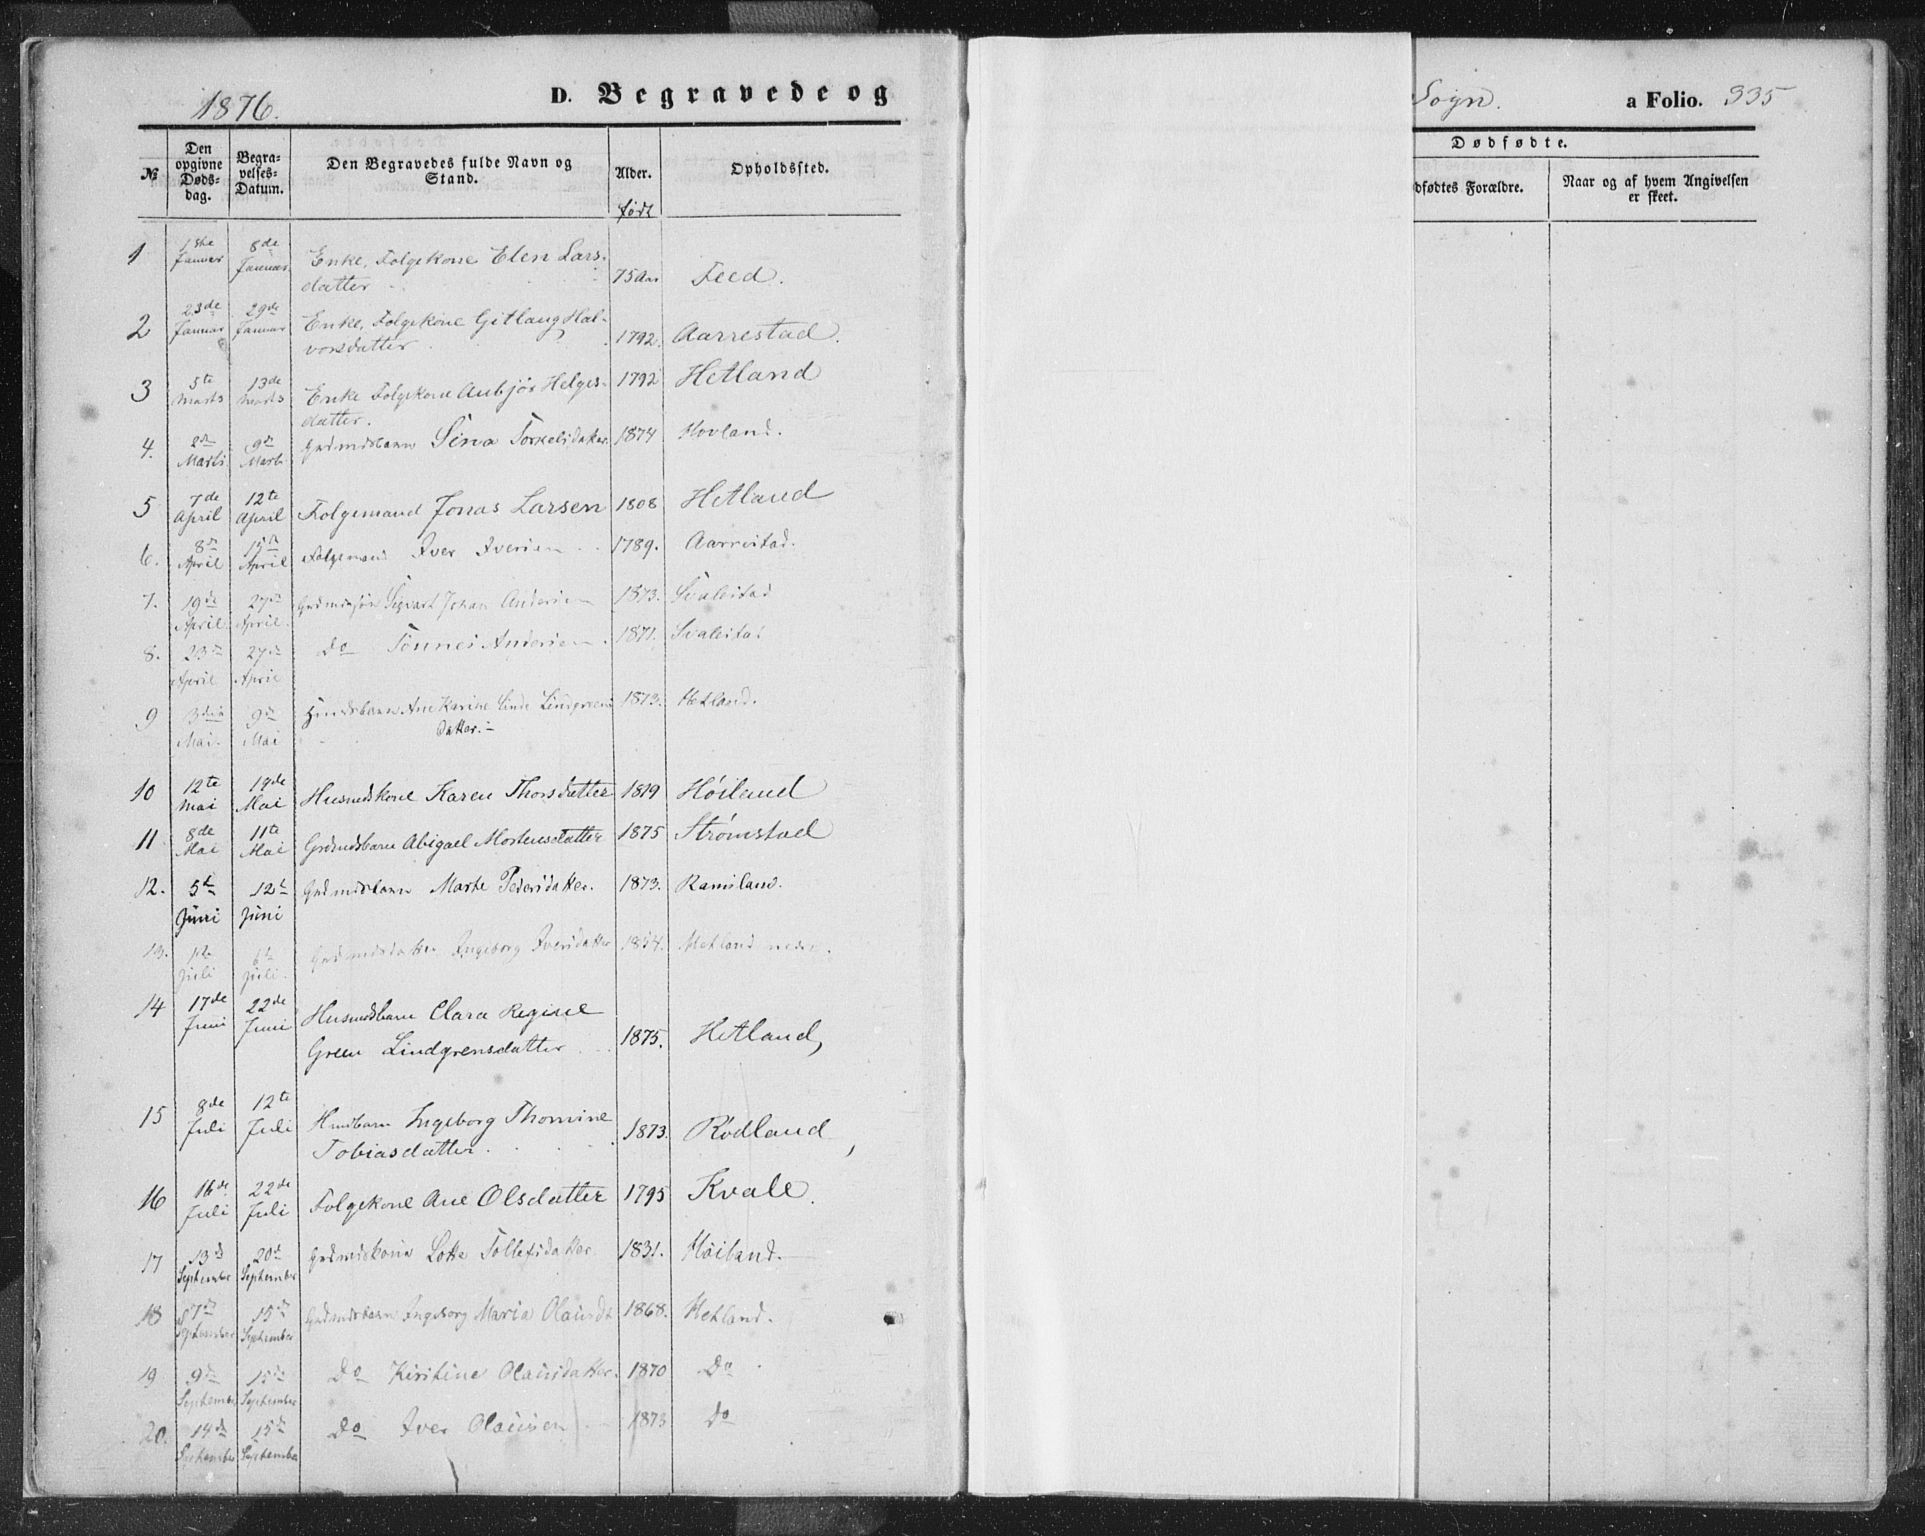 1876.
D. Begravede og
Sogn.
a Folio. 335
№
Den opgivne Døds-dag.
Begra-velses-Datum.
Den Begravedes fulde Navn og Stand.
Alder.
født
Opholdssted.
Dødfødte.
dfødtes Forældre.
Naar og af hvem Angivelsen er skeet.
1 1ste Januar 8de Januar Enke, Folgekone Elen Lars-datter 75 Aar Feed.
2 23de Januar 29de Januar Enke, Folgekone Gitlaug Hal-vorsdatter 1792. Aarrestad.
3 5te Marts 13de Marts Enke Folgekone Anbjør Helges-datter. 1792 Hetland
4. 2de Marts 9de Marts Grdmdsbarn Sina Torkelsdatter. 1874 Hovland.
5 7de April 12te April Folgemand Jonas Larsen 1808 Hetland
6. 8de April 15de April Folgemand Iver Iversen 1789. Aarrestad.
7. 19de April 27de April. Grdmdssøn Sigvart Johan Andersen 1873. Svalestad
8. 23de April 27de April Do Tønnes Andersen 1871. Svalestad
9 3die Mai. 9de Mai Husmdsbarn Ane Karine Linde Lindgreens datter. 1873. Hetland.
10 12te Mai 19de Mai Husmdskone Karen Thorsdatter 1819 Høiland
11 8de Mai 11te Mai Grdmdsbarn Abigael Mortensdatter 1875 Strømstad
12. 5te Juni 12te Juni Grdmdsbarn Marte Pedersdatter. 1873. Ramsland.
13. 1ste Juli 6te Juli. Grdmdsdatter Ingeborg Iversdatter 1854. Hetland nedre.
14 17de Juni 22de Juni Husmdsbarn Clara Regine
Green Lindgrensdatter 1875. Hetland,
15 8de Juli 12te Juli Husmdbarn Ingeborg Thomine
Tobiasdatter. 1873. Rodland
16 16de Juli 22de Juli Folgekone Ane Olsdatter 1795 Kvale.
17 13de September 20de September Grdmdskone Lotte Tollefsdatter 1831. Høiland.
18 7de September 15de September Grdmdsbarn Ingeborg Maria Olausdt 1868. Hetland.
19 9de September 15de September Do Kirstine Olausdatter. 1870 Do
20. 14de September 15de September Do Iver Olausen 1873 Do